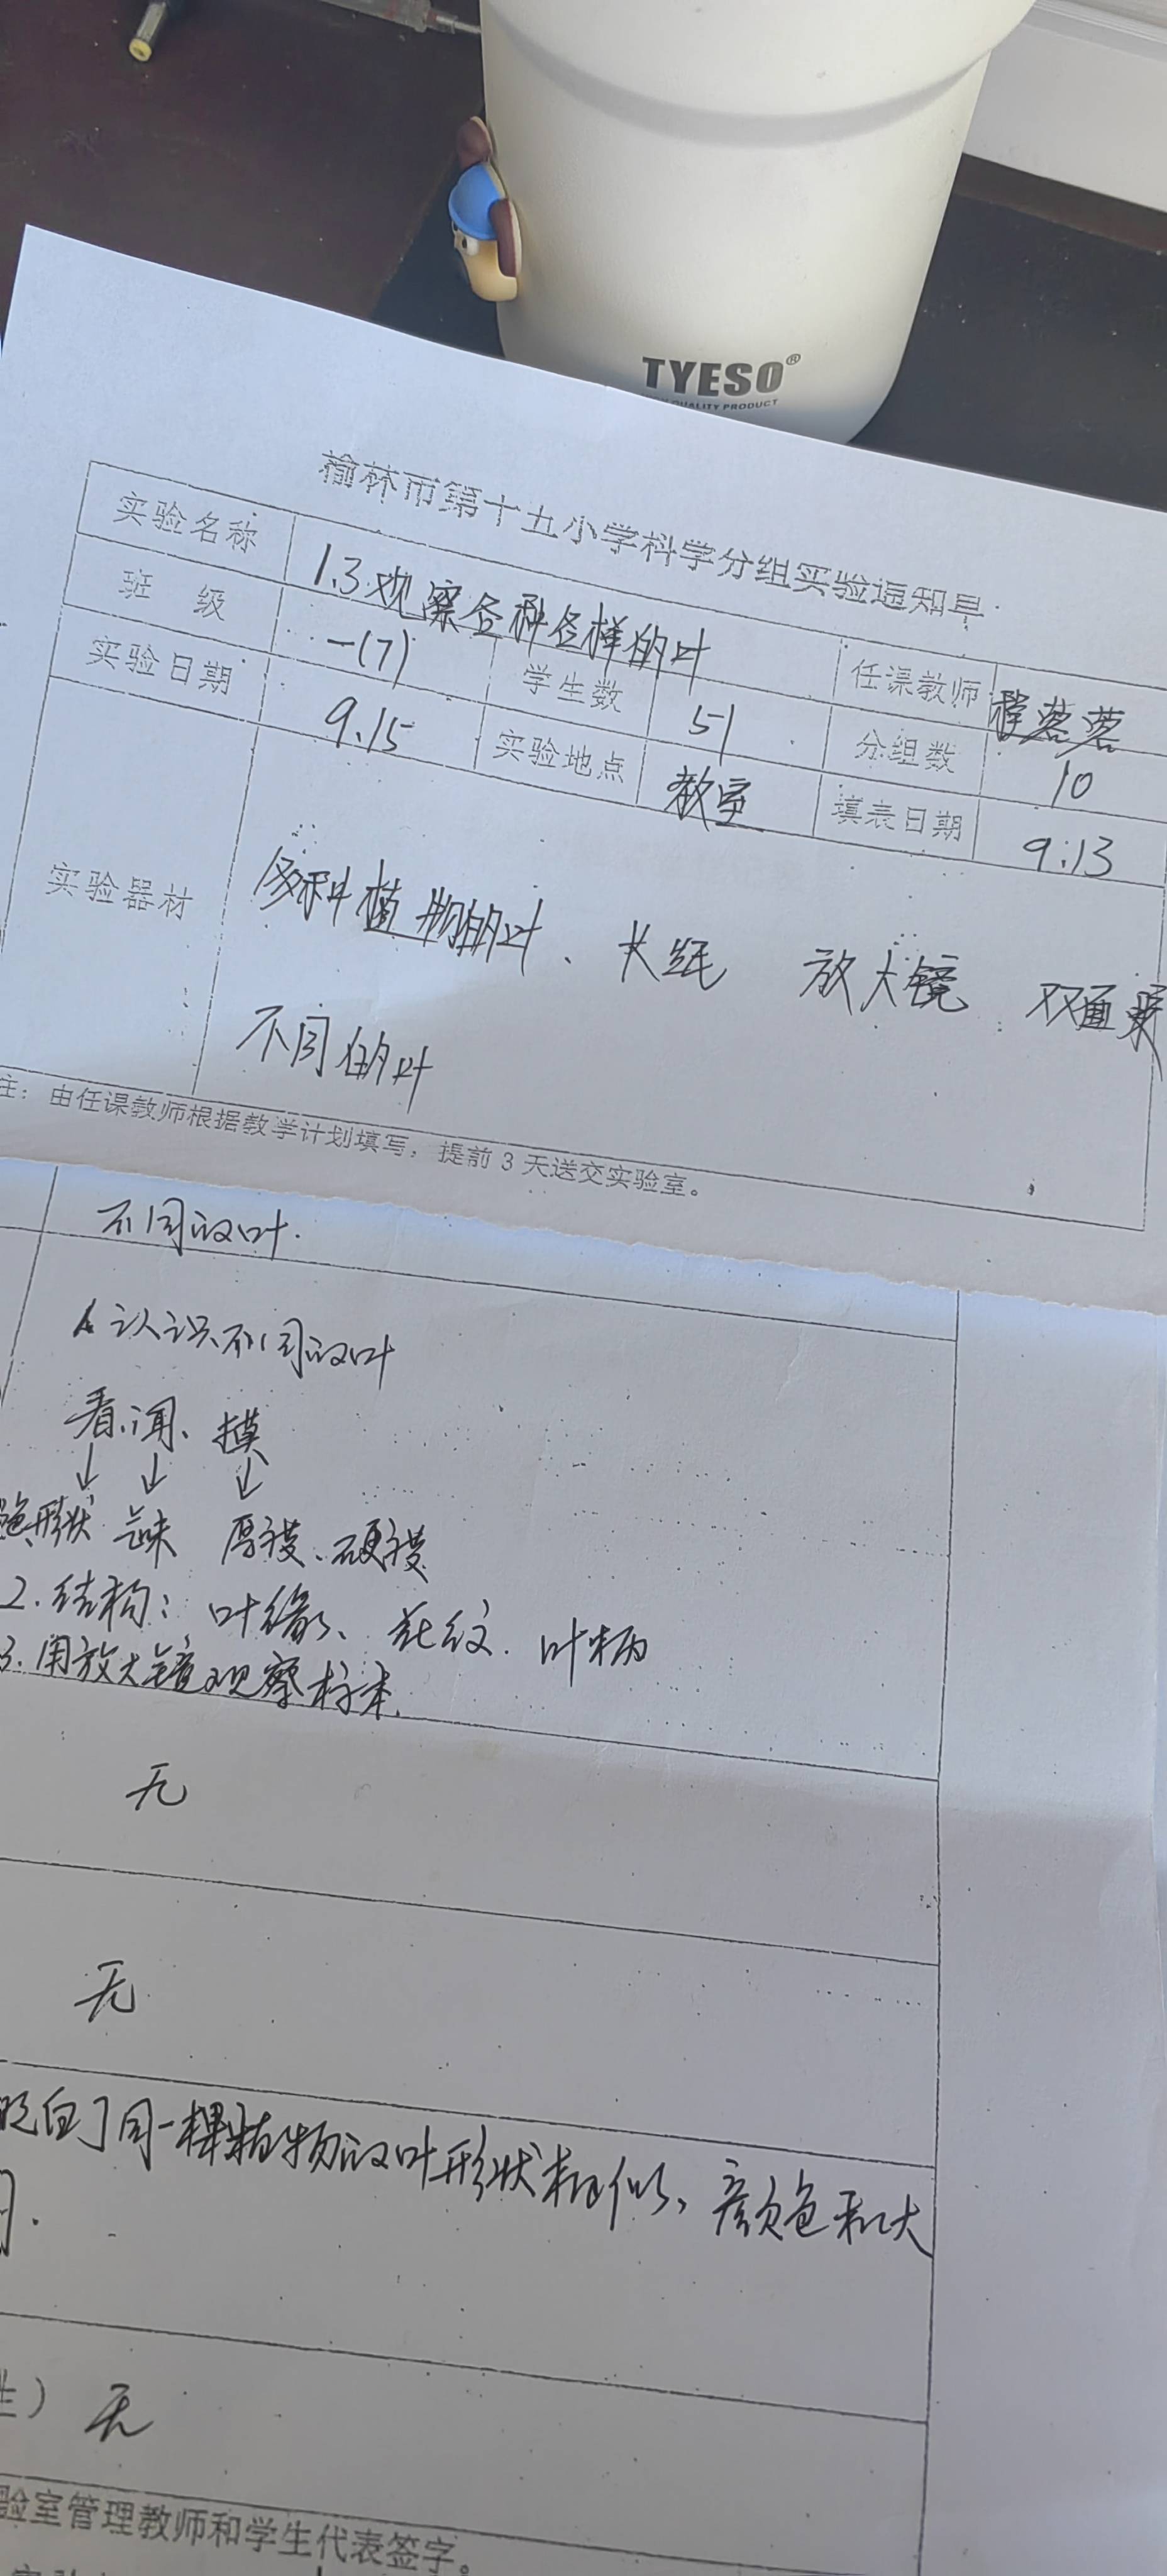 TYESO®
QUALITY PRODUCT
榆林市第十五小学科学分组实验通知单
实验名称 1.3观察各种各样的叶 任课教师
班 级 一(7) 学生数 51 分组数 10
实验日期 9.15 实验地点 教室 填表日期 9.13
实验器材 多种植物的叶、 放大镜 双面
不同的叶
注：由任课教师根据教学计划填写，提前 3 天送交实验室。
不同的叶.
1.认识不同的叶
看、闻、摸
↓ ↓ ↓
形状 气味 厚度、硬度
2.结构：叶缘、花纹、叶柄
3.用放大镜观察标本.
无
无
明白了同一棵植物的叶形状相似，颜色和大
生）无
验室管理教师和学生代表签字。